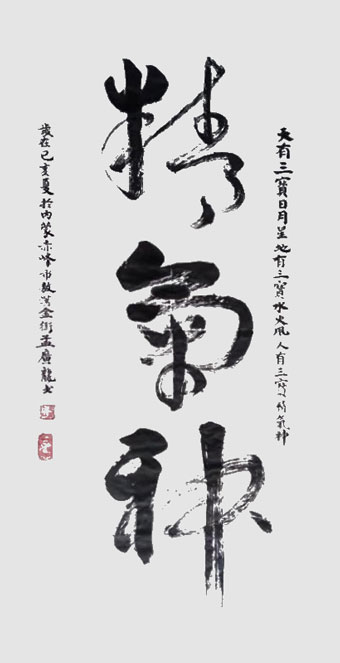 天有三寶日月星地有三寶水火風人有三寶精氣神
精氣神
歲在己亥夏於内蒙赤峰市金街孟廣龍書